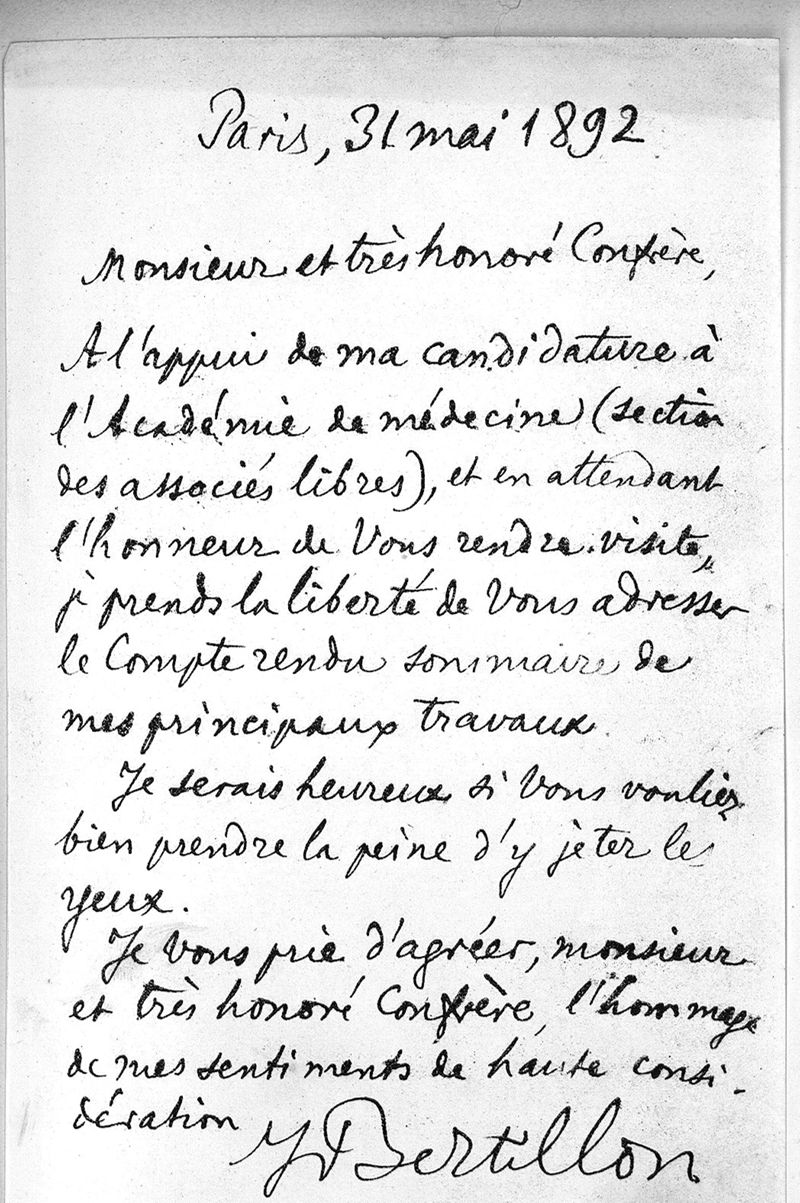 Paris, 31 mai 1892
Monsieur et très honoré Confrère,
A l'appui de ma candidature à
l'Académie de médecine (section
des associés libres), et en attendant
l'honneur de Vous rendre visite,
je prends la liberté de Vous adresser
le Compte rendu sommaire de
mes principaux travaux.
Je serais heureux si Vous vouliez
bien prendre la peine d'y jeter les
yeux.
Je Vous prie d'agréer, monsieur
et très honoré Confrère, l'hommage
de mes sentiments de haute consi-
dération
J Bertillon